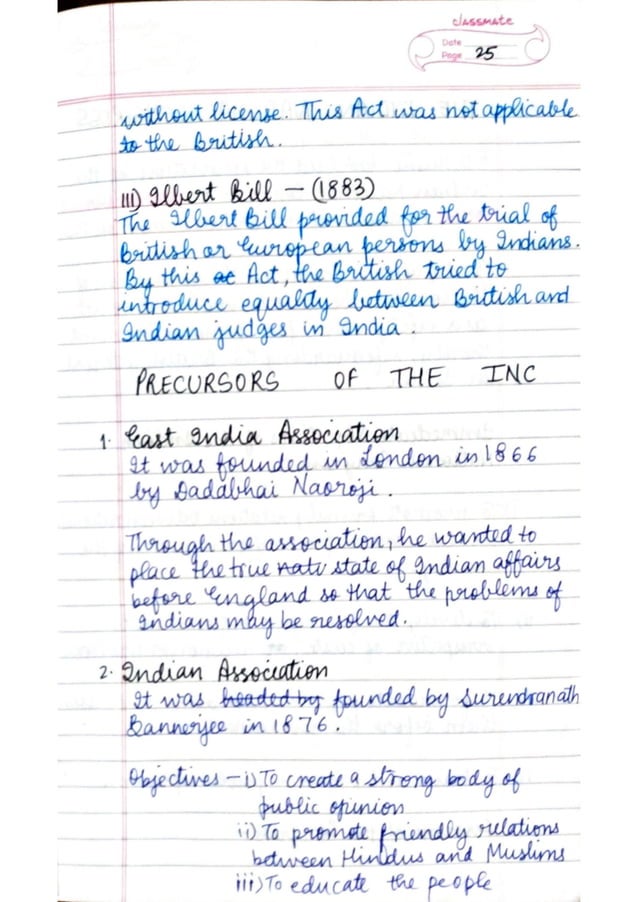 classmate
Date
Page 25
without license. This Act was not applicable
to the British.
III) Ilbert Bill – (1883)
The Ilbert Bill provided for the trial of
British or European persons by Indians.
By this ac Act, the British tried to
introduce equality between British and
Indian judges in India.
PRECURSORS OF THE INC
1. East India Association
It was founded in London in 1866
by Dadabhai Naoroji.
Through the association, he wanted to
place the true state of Indian affairs
before England so that the problems of
Indians may be resolved.
2. Indian Association
It was headed by founded by Surendranath
Bannerjee in 1876.
Objectives – i) To create a strong body of
public opinion
ii) To promote friendly relations
between Hindus and Muslims
iii) To educate the people